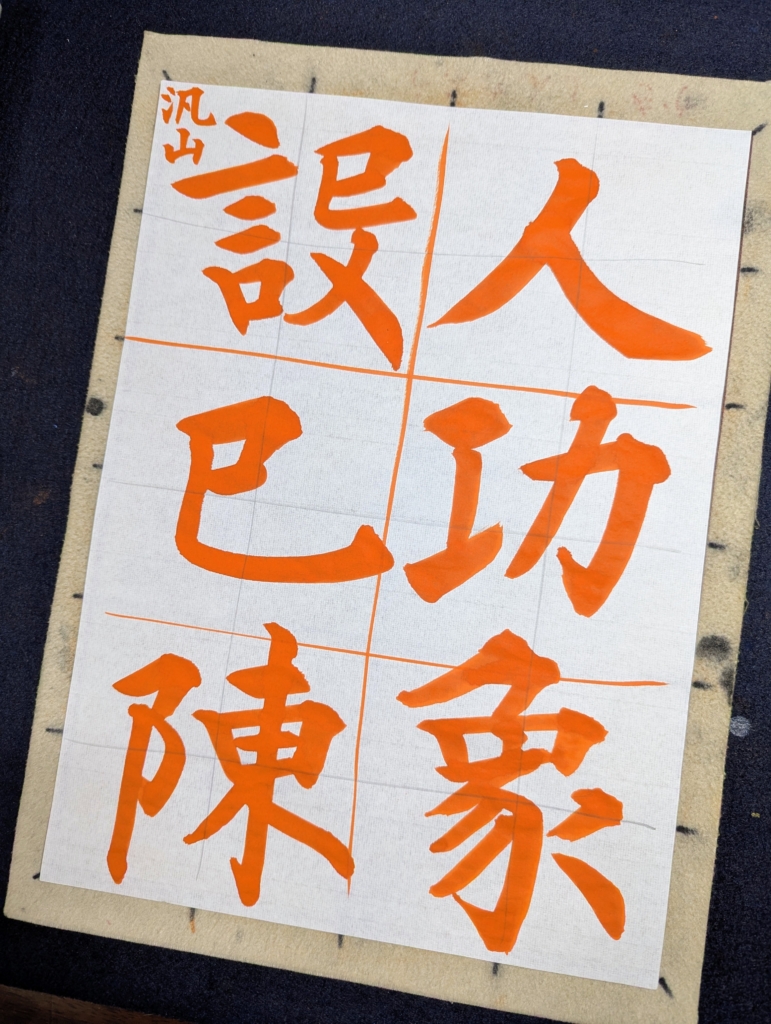 人功象
設巳陳
汎山